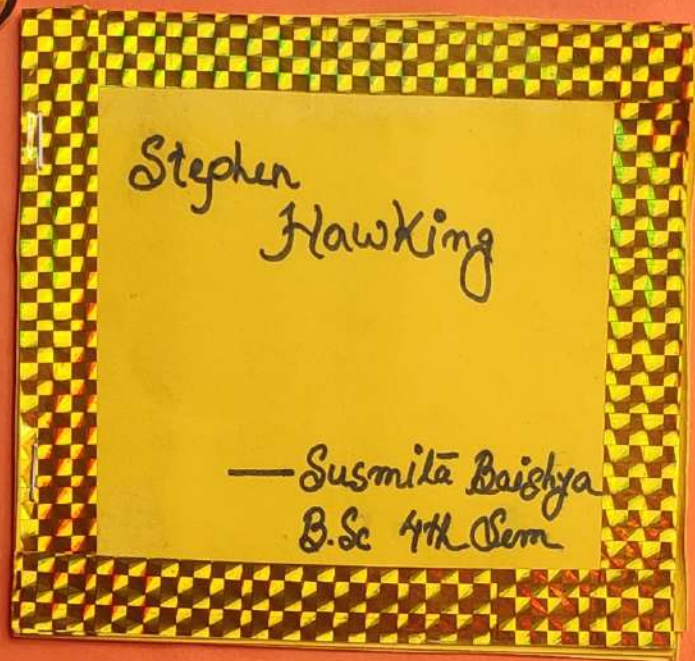 Stephen
Hawking
— Susmitā Baishya
B.Sc 4th Sem